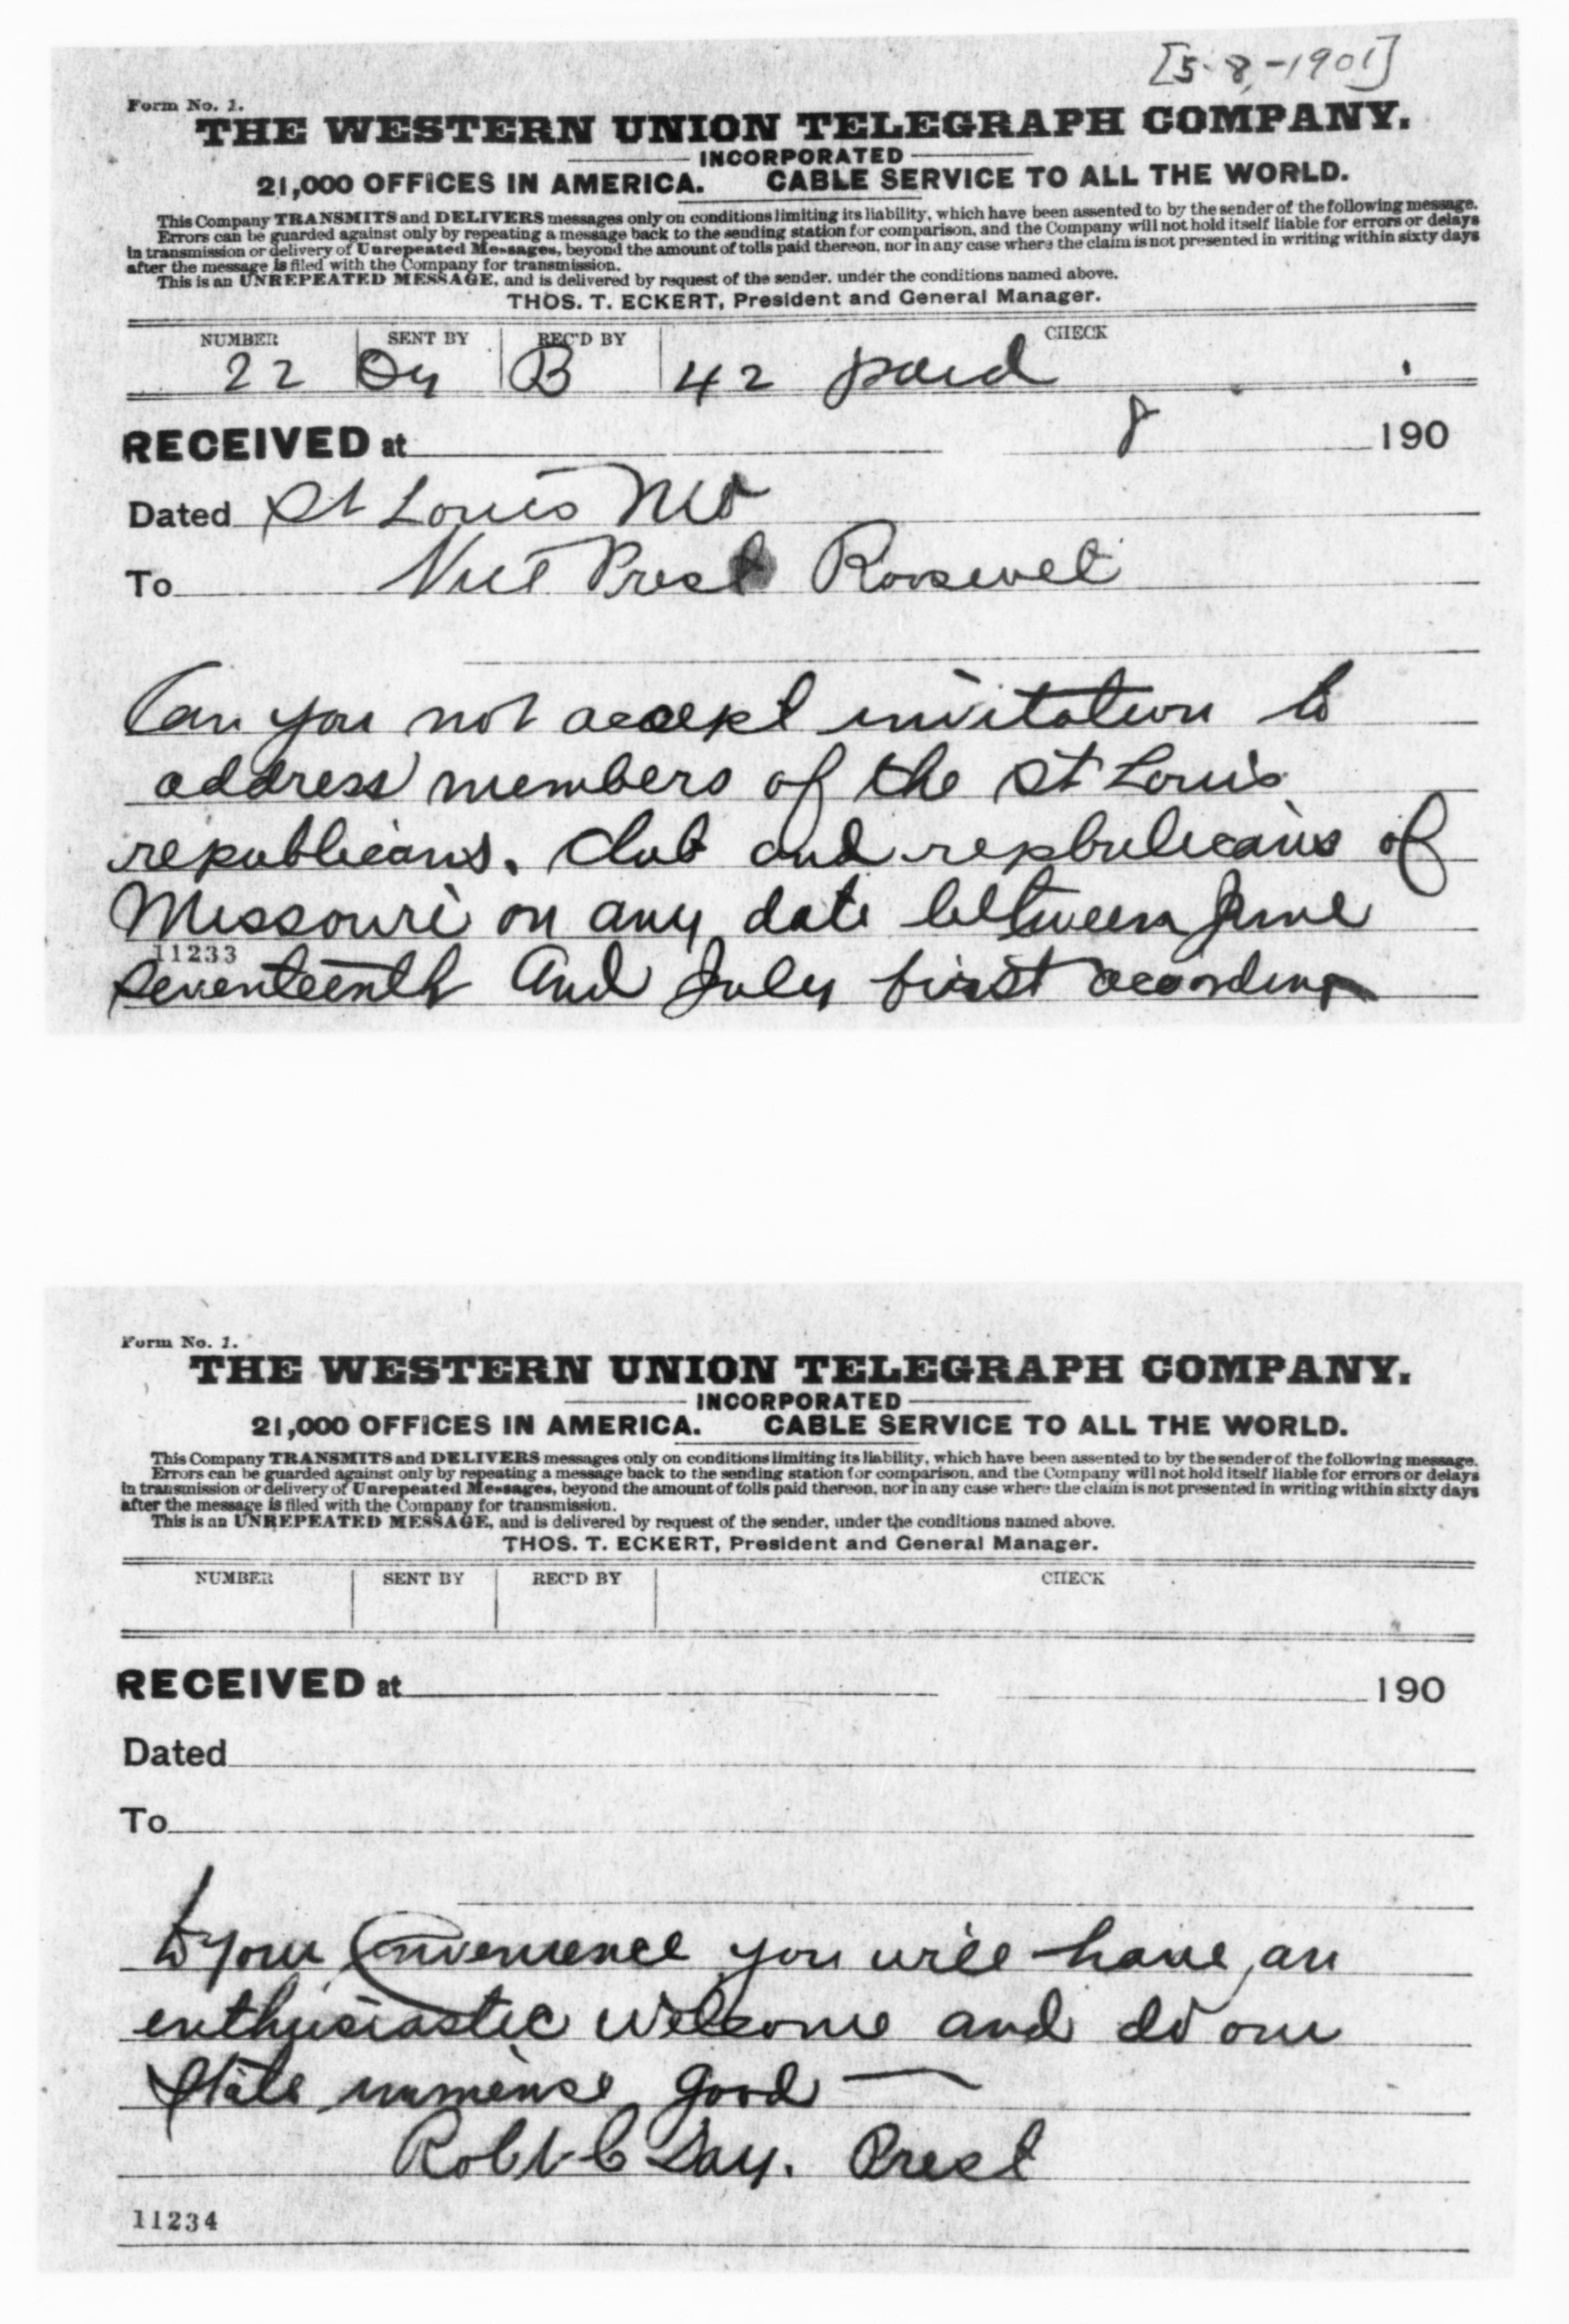 [5-8-1901]
Form No. 1.
THE WESTERN UNION TELEGRAPH COMPANY.
INCORPORATED
21,000 OFFICES IN AMERICA. CABLE SERVICE TO ALL THE WORLD.
This Company TRANSMITS and DELIVERS messages only on conditions limiting its liability, which have been assented to by the sender of the following message.
Errors can be guarded against only by repeating a message back to the sending station for comparison, and the Company will not hold itself liable for errors or delays
in transmission or delivery of Unrepeated Messages, beyond the amount of tolls paid thereon, nor in any case where the claim is not presented in writing within sixty days
after the message is filed with the Company for transmission.
This is an UNREPEATED MESSAGE, and is delivered by request of the sender, under the conditions named above.
THOS. T. ECKERT, President and General Manager.
NUMBER SENT BY REC'D BY CHECK
22 B 42 paid
RECEIVED at 8 190
Dated St Louis Mo
To Vice Prest Roosevelt
Can you not accept invitation to
address members of the St Louis
republicans. Club and repbulicans of
Missouri on any date between June
11233
seventeenth And July first according
Form No. 1.
THE WESTERN UNION TELEGRAPH COMPANY.
INCORPORATED
21,000 OFFICES IN AMERICA. CABLE SERVICE TO ALL THE WORLD.
This Company TRANSMITS and DELIVERS messages only on conditions limiting its liability, which have been assented to by the sender of the following message.
Errors can be guarded against only by repeating a message back to the sending station for comparison, and the Company will not hold itself liable for errors or delays
in transmission or delivery of Unrepeated Messages, beyond the amount of tolls paid thereon, nor in any case where the claim is not presented in writing within sixty days
after the message is filed with the Company for transmission.
This is an UNREPEATED MESSAGE, and is delivered by request of the sender, under the conditions named above.
THOS. T. ECKERT, President and General Manager.
NUMBER SENT BY REC'D BY CHECK
RECEIVED at 190
Dated
To
to your Convenience you will have an
enthusiastic welcome and do our
State immense good —
Robt C Day. Prest
11234